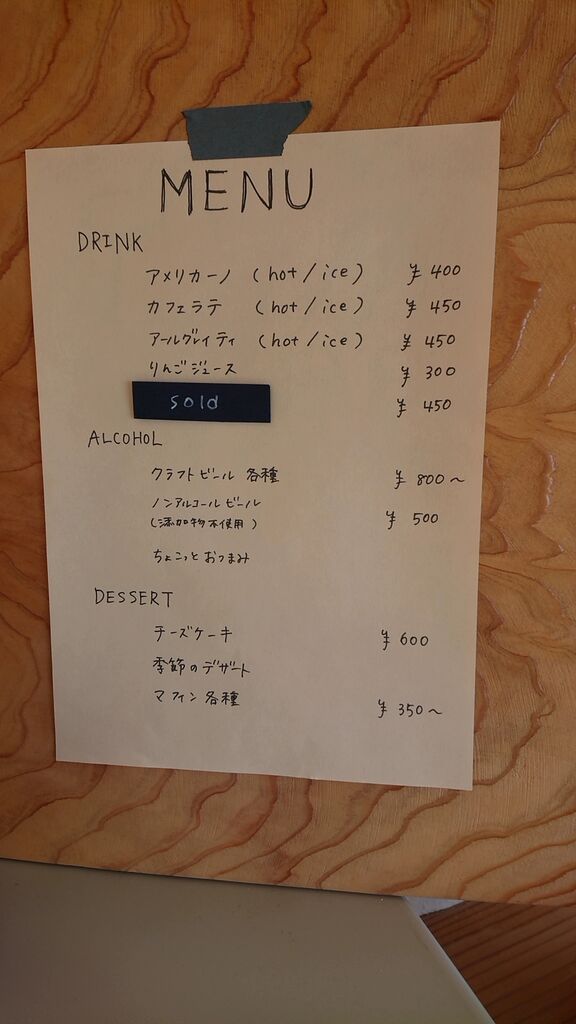 MENU
DRINK
アメリカーノ (hot/ice) ¥400
カフェラテ (hot/ice) ¥450
アールグレイティ (hot/ice) ¥450
りんごジュース ¥300
sold ¥450
ALCOHOL
クラフトビール 各種 ¥800~
ノンアルコールビール
(添加物不使用) ¥500
ちょこっとおつまみ
DESSERT
チーズケーキ ¥600
季節のデザート
マフィン各種 ¥350~